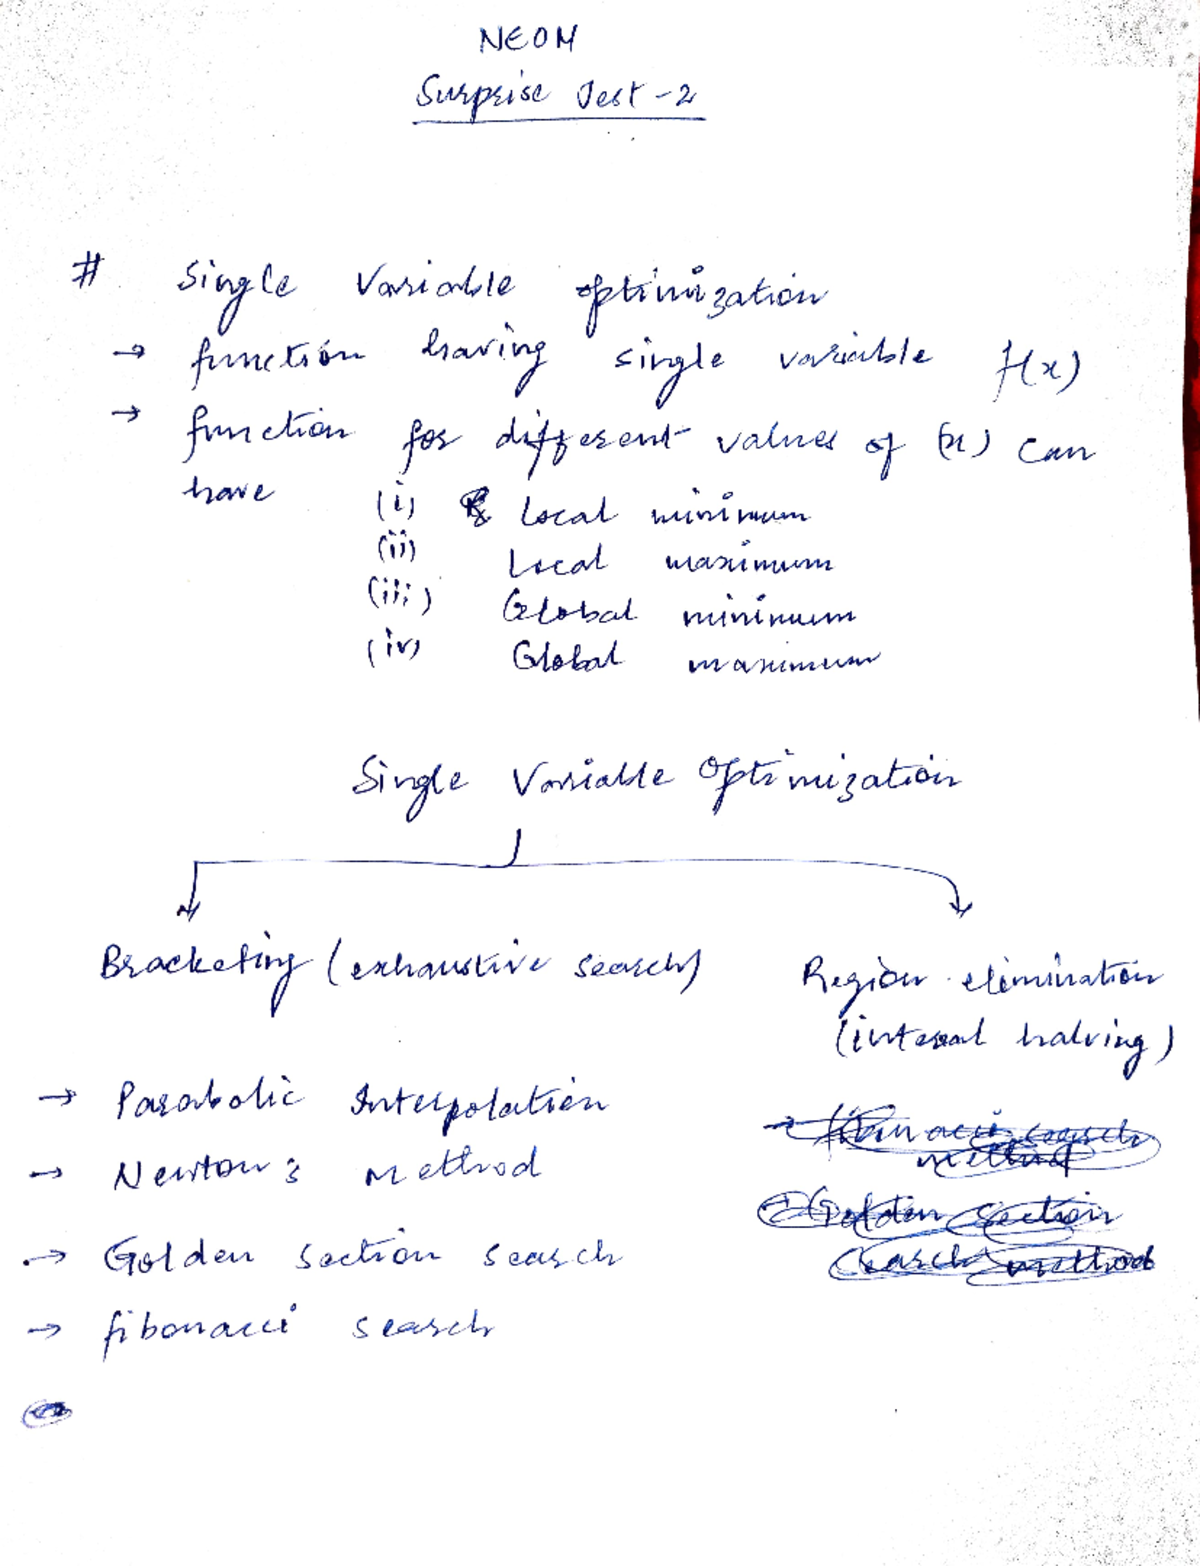 NEOM
Surprise Test - 2
# Single Variable optimization
→ function having single variable f(x)
→ function for different values of (x) can
have (i) Local minimum
(ii) Local maximum
(iii) Global minimum
(iv) Global maximum
Single Variable Optimization
Bracketing (exhaustive search)
Region elimination
(interval halving)
→ Parabolic Interpolation
→ Newton's method
→ Golden section search
→ fibonacci search
→ fibonacci search
method
→ Golden section
search method